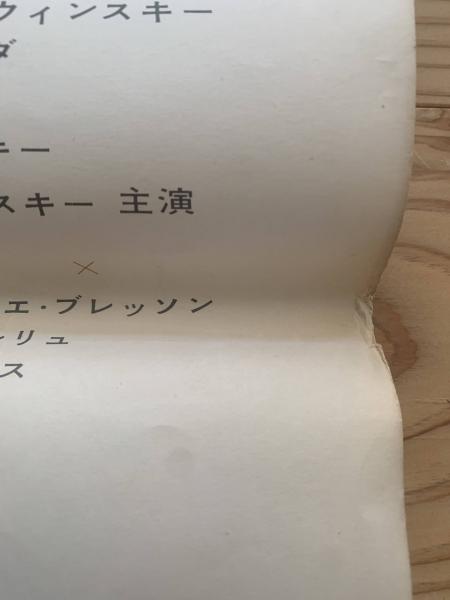 ウィンスキー
ダ
キー
スキー 主演
×
エ・ブレッソン
リュ
ス